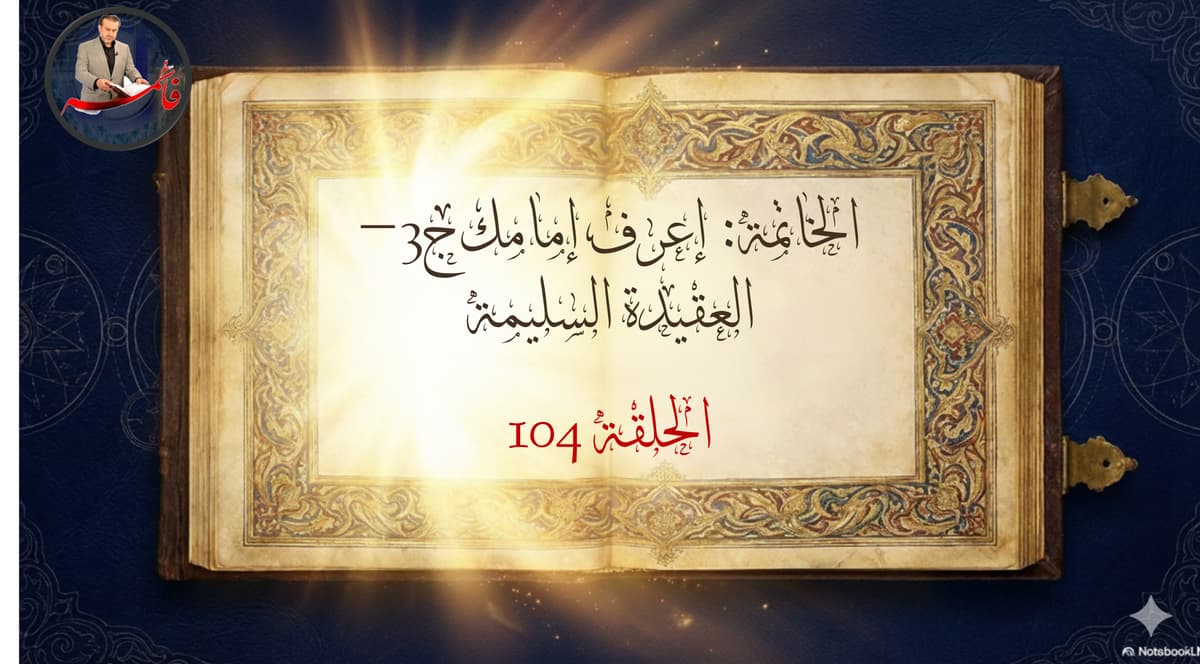 فاطمة
الخاتمة: إعرف إمامك ج3 –
العقيدة السليمة
الحلقة 104
NotsbookLM